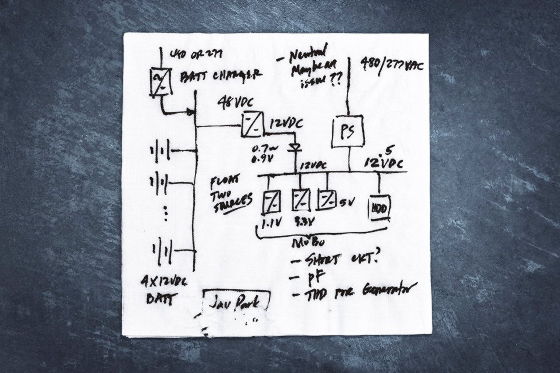 480 OR 277
BATT CHARGER
- Neutral
May be an
issue??
480/277VAC
48VDC
12VDC
PS
0.7~
0.9V
12VDC
12.5VDC
FLOAT
TWO
SOURCES
1.1V
3.3V
5V
HDD
MoBo
- SHORT CKT?
- PF
- THD FOR Generator
4X12VDC
BATT
Jay Park